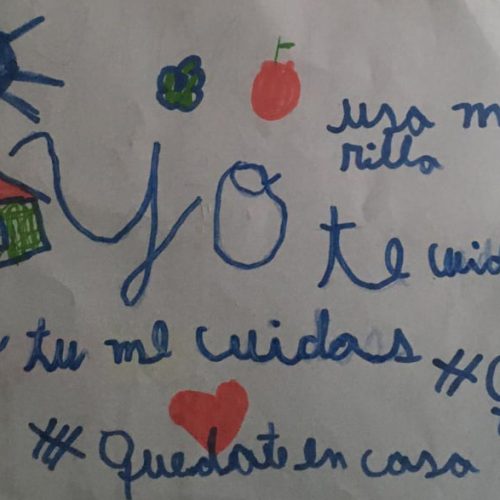 usa m
rilla
Yo
te cuid
tu me cuidas #
#Quedate en casa